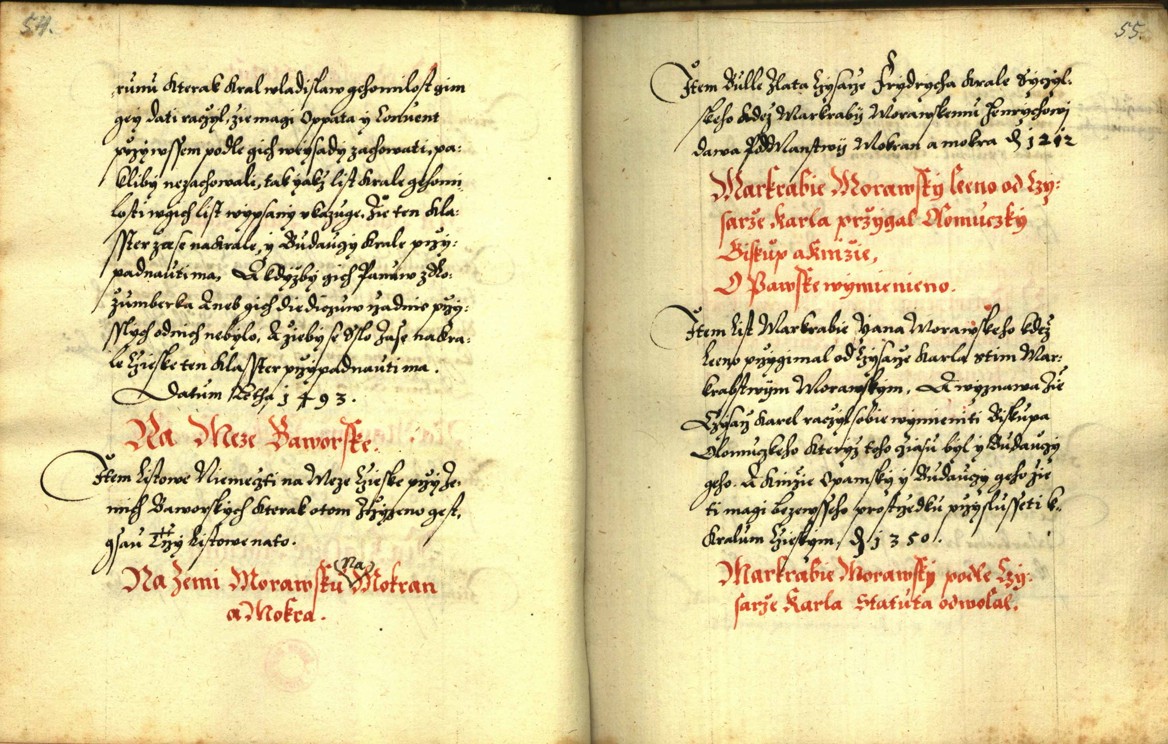 54.
rumu kterak kral wladislaw geho milost gim
gey dati raczyl, zie magi Oppata y Conuent
przy wssem podle gich weysady zachowati, pa:
kliby nezachowali, tak yakz list krale geho mi
losti w gich list wypsany vkazuge, Zie ten Kla:
sster zase na krale, y Budauczy krale przy:
padnauti ma, A kdyzby gich Panuw z Ro:
zumberka Aneb gich diediczuw zadnie przy:
sslych od nich nebylo, A zieby se sslo zase na kra:
le Czieske ten Klasster przypadnauti ma.
Datum Letha 1493.
Na Meze Baworske.
Item Listowe Niemeczti na Meze Czieske przy Ze:
mich Baworskych kterak o tom Zrzyzeno gest,
gsau Trzy Listowe na to.
Na Zemi Morawsku Na Mokran
a Mokra.
55.
Item Bulle Zlata Czysarze Frydrycha Krale Syczyl:
skeho kdez Markraby Morawskemu Henrychowi
dawa Manstwij Mokran a mokra 1212
Markrabie Morawsky leeno od Czy:
sarze Karla przygal Olomuczky
Biskup a knizie,
O Pawske wymienieno.
Item List Markrabie Yana Morawskeho kdez
Leeno przygimal od Czysarze Karla s tim Mar:
krabstwym Morawskym, A wyznawa Zie
Czysarz Karel raczyl sobie wymieniti Biskupa
Olomuczkeho kteryz toho cziasu byl y Budauczy
geho. A Knizie Opawsky y Budauczy geho Zie
ti magi bezewsseho prostrzedku przyslusseti k
Kraluom Czieskym, 1350.
Markrabie Morawsky podle Czy:
sarze Karla Statuta odwolal.